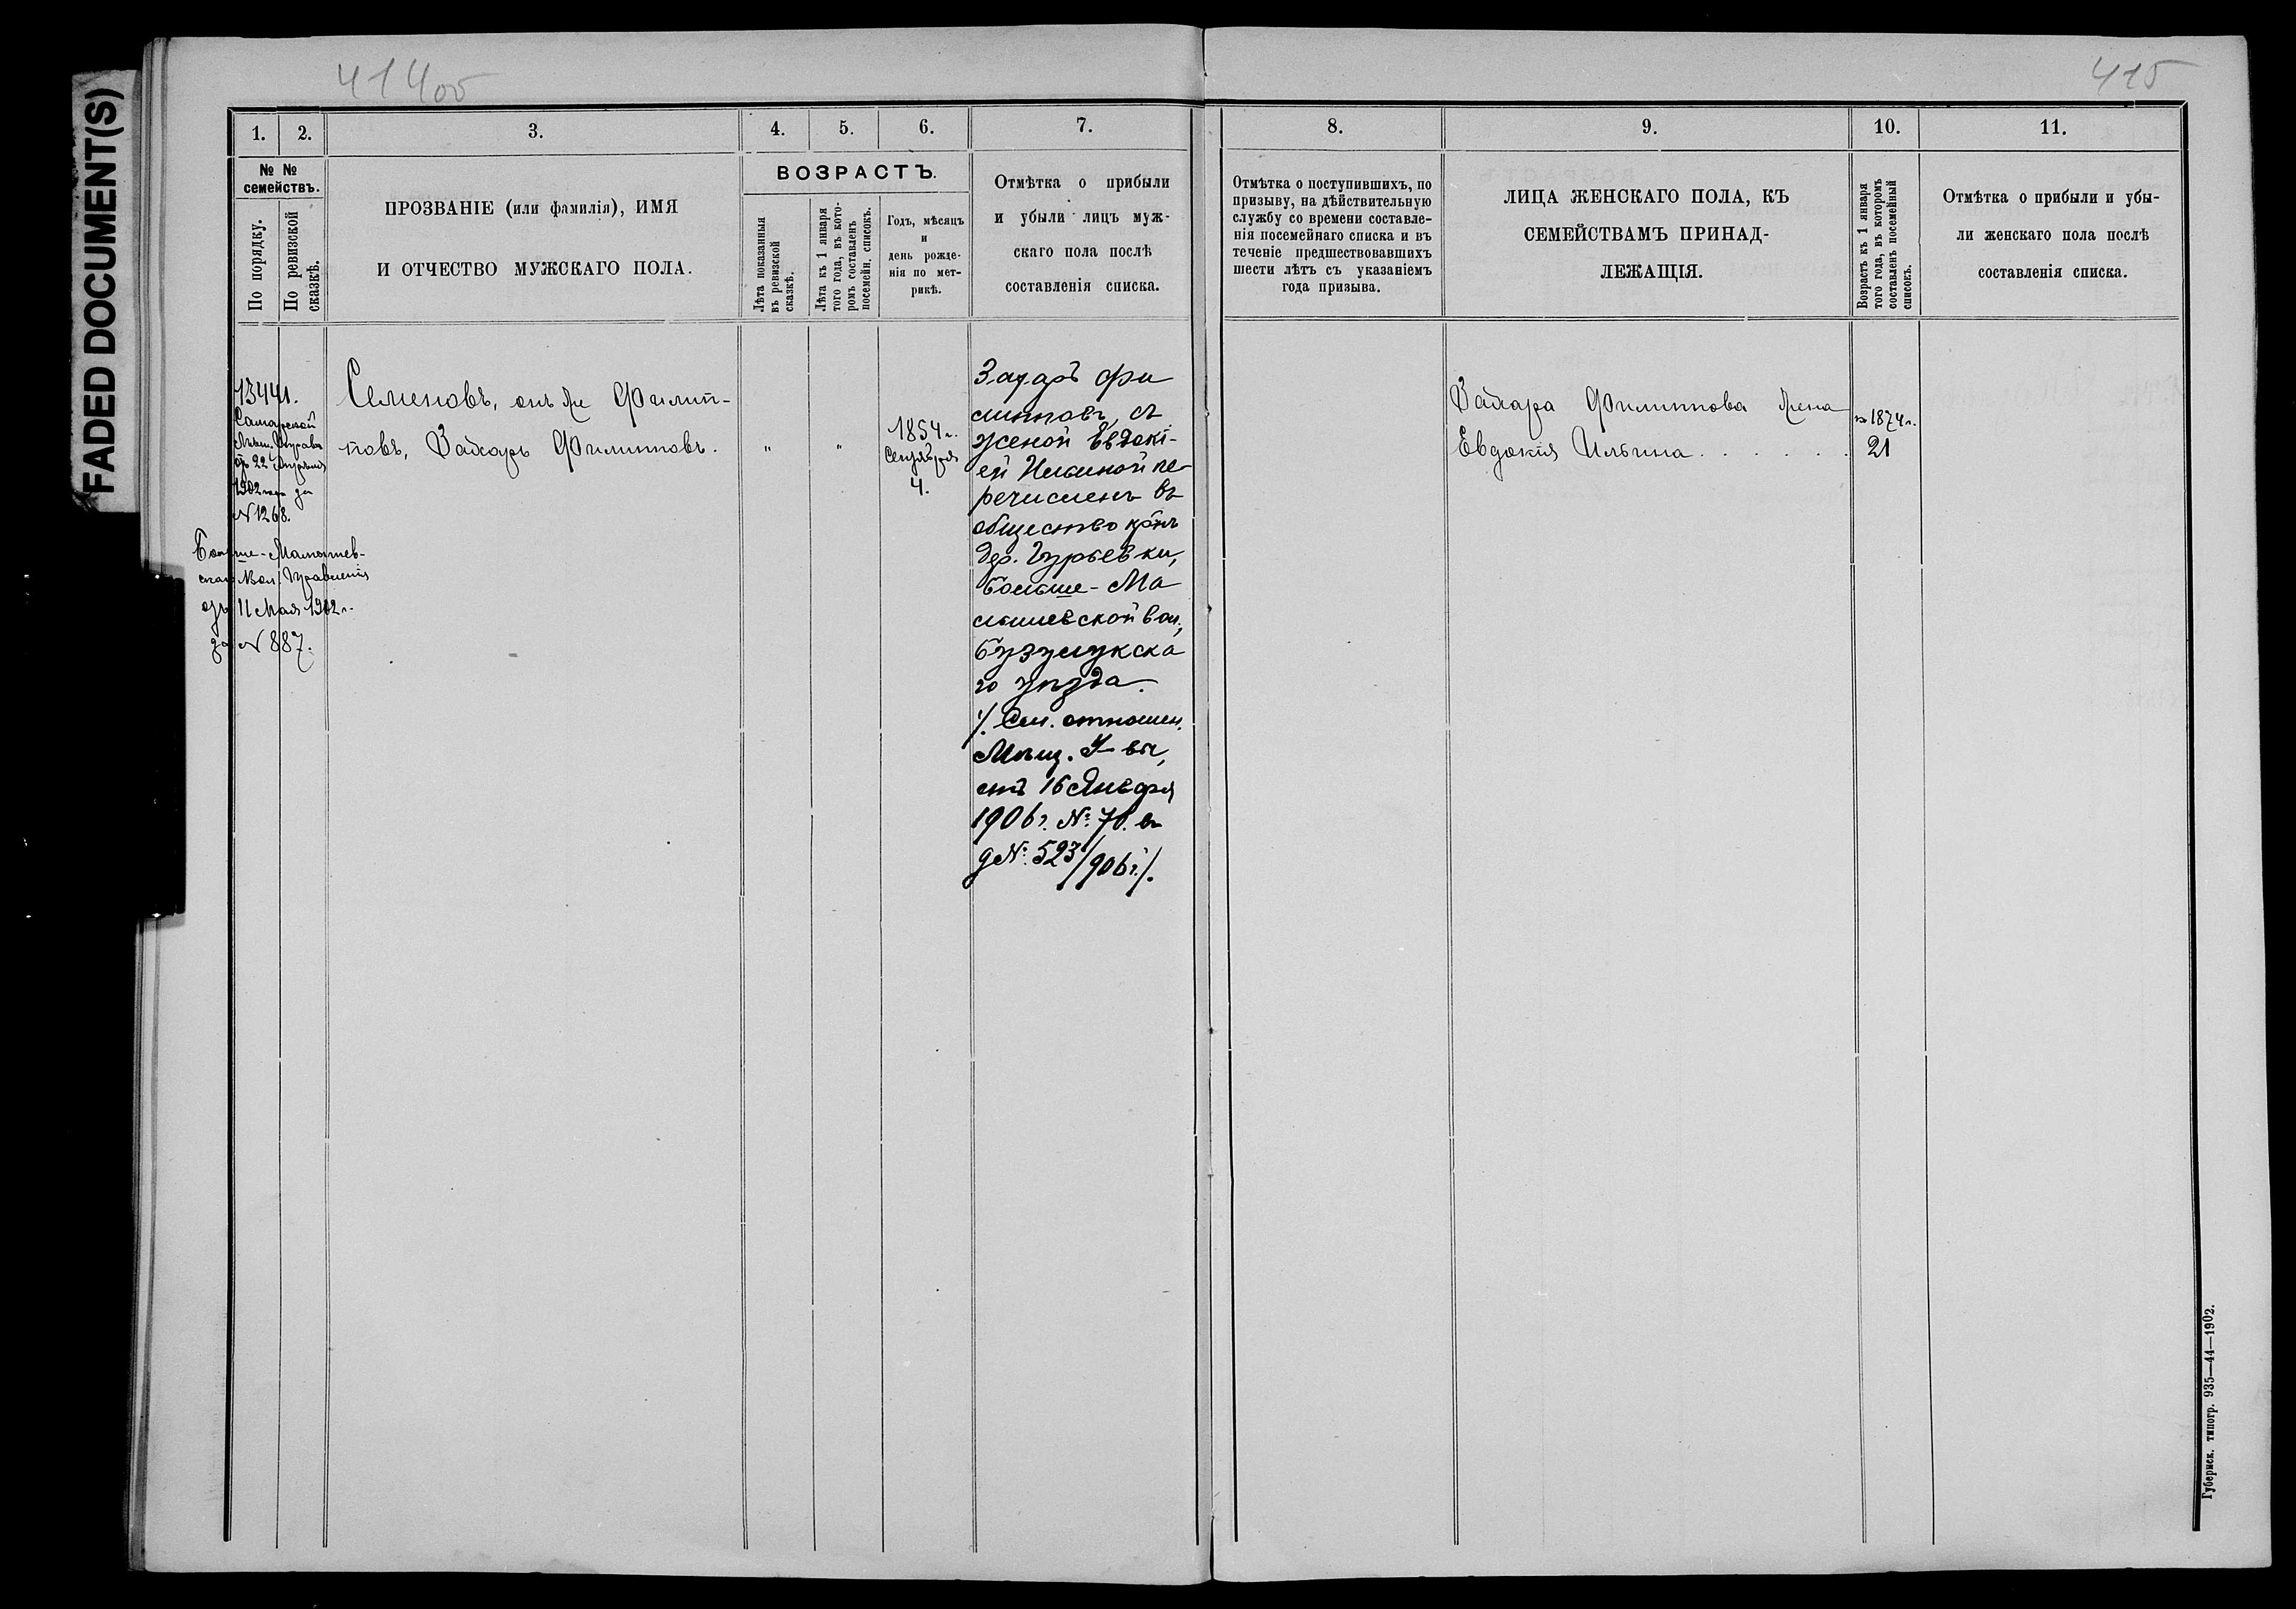 FADED DOCUMENT(S)
414 об
415
1.
2.
3.
4.
5.
6.
7.
8.
9.
10.
11.
№ №
семействъ.
По порядку.
По ревизской
сказкѣ.
ПРОЗВАНІЕ (или фамилія), ИМЯ
И ОТЧЕСТВО МУЖСКАГО ПОЛА.
ВОЗРАСТЪ.
Лѣта показанныя
въ ревизской
сказкѣ.
Лѣта къ 1 января
того года, въ кото-
ромъ составленъ
посемейн. списокъ.
Годъ, мѣсяцъ
и
день рожде-
нія по мет-
рикѣ.
Отмѣтка о прибыли
и убыли лицъ муж-
скаго пола послѣ
составленія списка.
Отмѣтка о поступившихъ, по
призыву, на дѣйствительную
службу со времени составле-
нія посемейнаго списка и въ
теченіе предшествовавшихъ
шести лѣтъ съ указаніемъ
года призыва.
ЛИЦА ЖЕНСКАГО ПОЛА, КЪ
СЕМЕЙСТВАМЪ ПРИНАД-
ЛЕЖАЩІЯ.
Возрастъ къ 1 января
того года, въ которомъ
составленъ посемейный
списокъ.
Отмѣтка о прибыли и убы-
ли женскаго пола послѣ
составленія списка.
13441.
Самарской
Мѣщ. Управы
отъ 22 Апрѣля
1902 года за
№ 1268.
Больше-Малышев-
скаго Вол. Правленія
отъ 11 Мая 1902 г.
за № 887.
Семеновъ, онъ же Филип-
повъ, Захаръ Филипповъ.
"
"
1854 г.
Сентября
4.
Захаръ Фи
липповъ, съ
женой Евдокі-
ей Ильиной пе-
речисленъ въ
общество кр-нъ
дер. Гурьевки,
Больше-Ма
лышевской вол.,
Бузулукска
го уѣзда.
/. См. отношен.
Мѣщ. У-вы,
отъ 16 Января
1906 г. №: 70. въ
д №: 523/906 г./.
Захара Филиппова жена
Евдокія Ильина . . . . . .
1874 г.
21
Губернск. типогр. 935—44—1902.